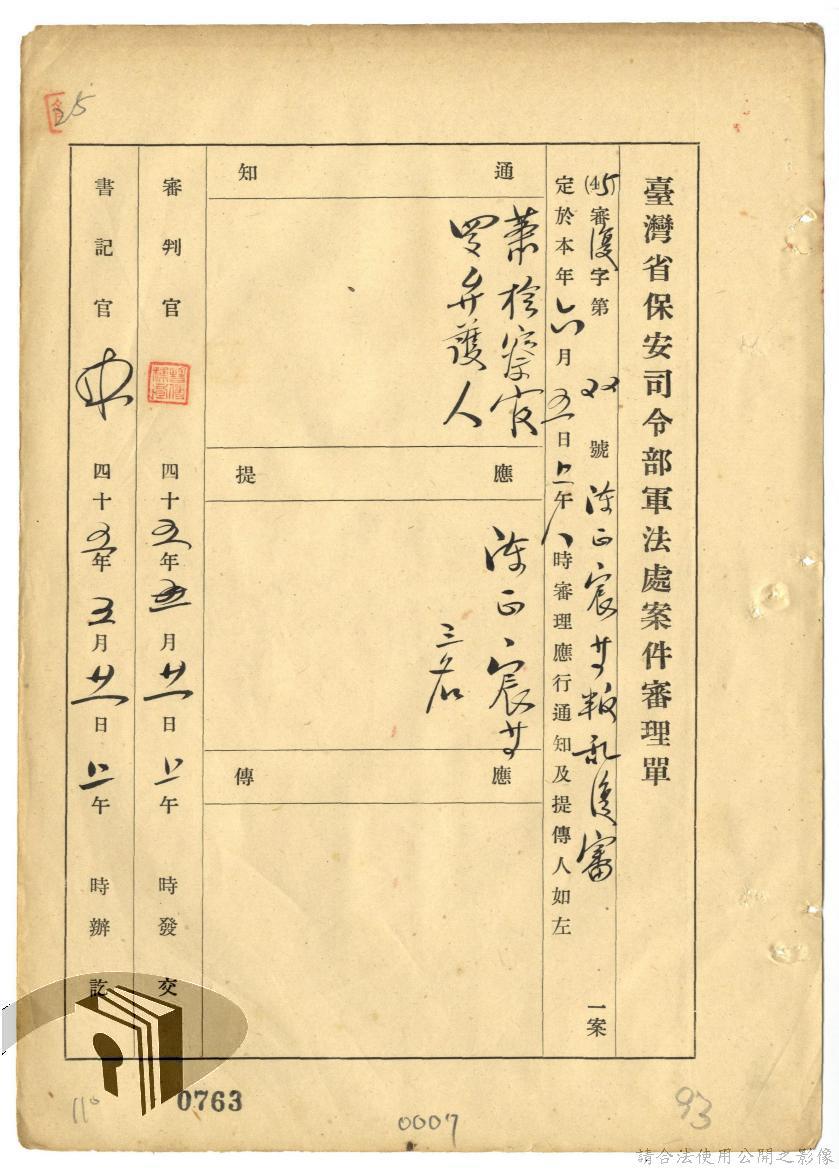 臺灣省保安司令部軍法處案件審理單
(45)審復字第 双 號 陳正宸等叛亂復審 一案
定於本年六月五日上午八時審理應行通知及提傳人如左
通知
蕭檢察官
罗弁護人
應提
陳正宸等
三名
應傳
審判官 四十五年五月廿一日上午 時發交
書記官 四十五年五月廿一日上午 時辦訖
25
110
0763
0007
93
請合法使用公開之影像